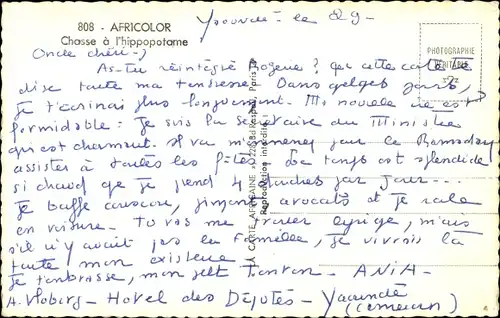 808 - AFRICOLOR
Chasse à l'hippopotame
Yaoundé - le 29 -
PHOTOGRAPHIE
VÉRITABLE
Oncle chéri -
As-tu réintégré ? que cette carte te
dise toute ma tendresse. Dans qelqes jours,
je t'écrirai plus longuement. Ma nouvelle vie est
formidable : Je suis la secrétaire du Ministre
qui est charmant. Il va m'emmener pour le Ramadan
assister à toutes les fêtes. Le temps est splendide
si chaud que je prend 4 douches par jour...
Je bouffe couscou, piment, avocats et je roule
en voiture. Tu vas me trouver, mais
s'il n'y avait pas la famille, je vivrais là
toute mon existence
Je t'embrasse, mon ptit Tonton - ANIA -
A. - Hotel des Députés - Yaoundé
(Cameroun)
LA CARTE AFRICAINE Raspail, Paris
Reproduction interdite